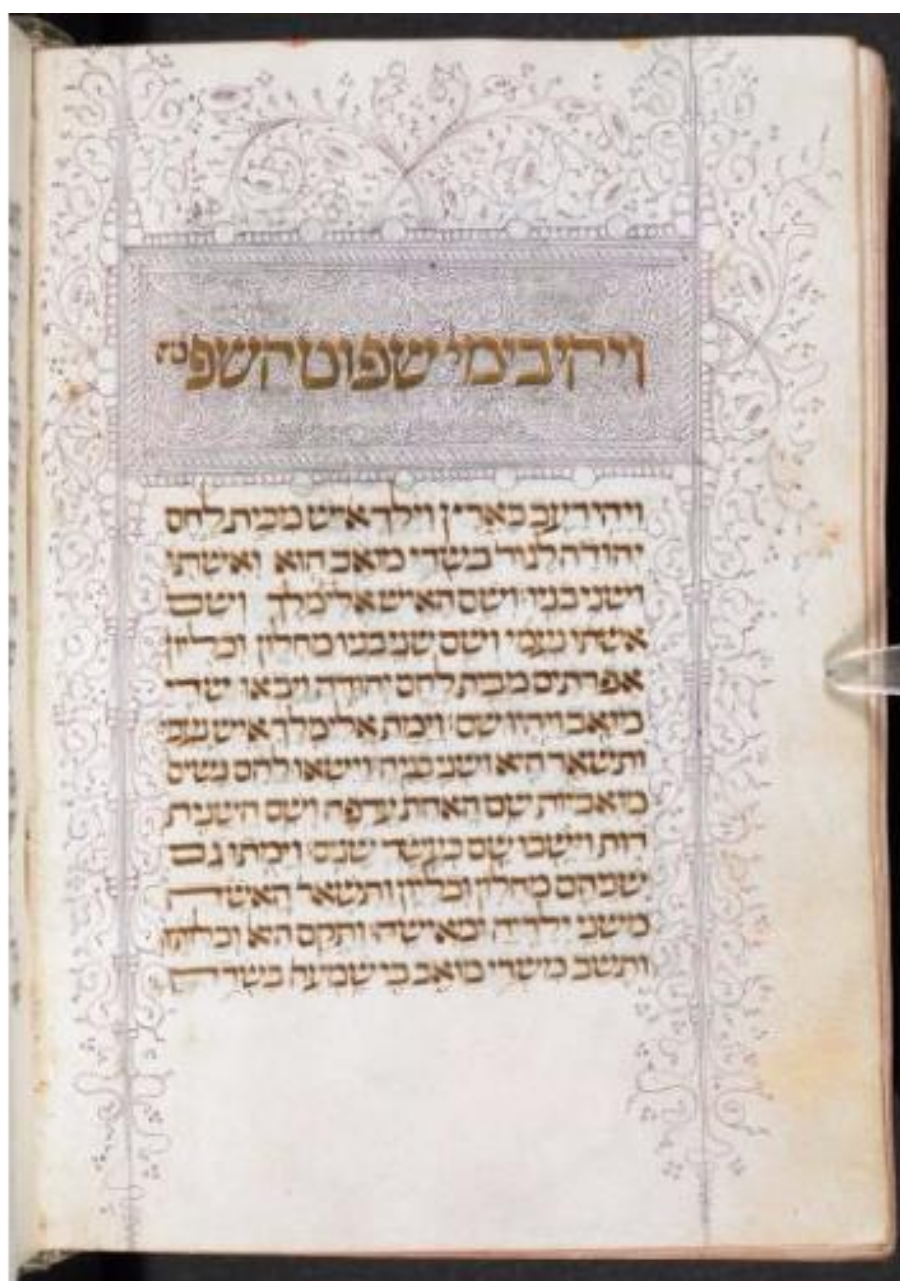 ויהי בימי שפוט השפ
ויהי רעב בארץ וילך איש מבית לחם
יהודה לגור בשדי מואב הוא ואשתו
ושני בניו ושם האיש אלימלך ושם
אשתו נעמי ושם שני בניו מחלון וכליון
אפרתים מבית לחם יהודה ויבאו שדי
מואב ויהיו שם וימת אלימלך איש נעמי
ותשאר היא ושני בניה וישאו להם נשים
מואביות שם האחת ערפה ושם השנית
רות וישבו שם כעשר שנים וימתו גם
שניהם מחלון וכליון ותשאר האשה
משני ילדיה ומאישה ותקם היא וכלתיה
ותשב משדי מואב כי שמעה בשדה